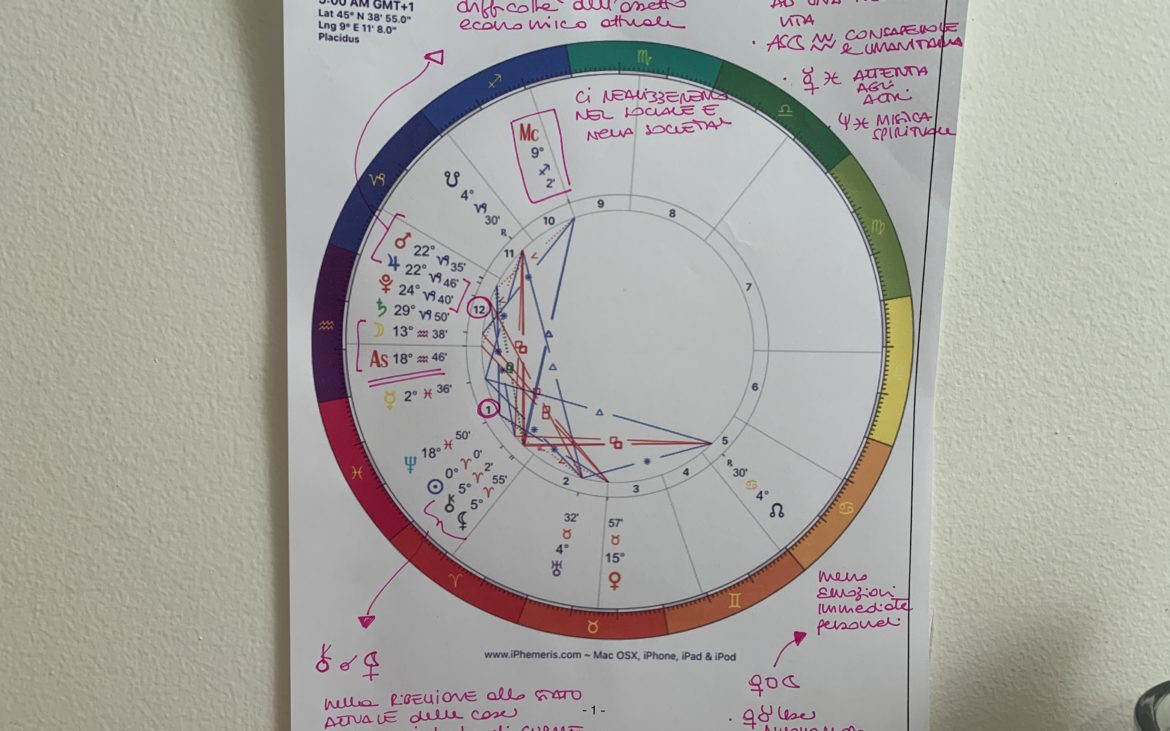 5:00 AM GMT+1
Lat 45° N 38' 55.0"
Lng 9° E 11' 8.0"
Placidus
difficoltà dell'assetto
economico attuale
AD UNA
VITA
· ASC ♒ CONSAPEVOLE
e UMANITARIA
· ☿ ♓ ATTENTA
AGLI
ALTRI
· Ψ ♓ MISTICA
SPIRITUALE
CI REALIZZEREMO
NEL SOCIALE E
NELLA SOCIETA'
♏
♐
♎
♑
♍
♒
♓
♋
♈
♊
♉
Mc
9°
♐
2'
☋
4°
♑
30'
R
♂ 22° ♑ 35'
♃ 22° ♑ 46'
♇ 24° ♑ 40'
♄ 29° ♑ 50'
☽ 13° ♒ 38'
As 18° ♒ 46'
☿ 2° ♓ 36'
♆ 18° ♓ 50'
☉ 0° ♈ 0'
⚷ 5° ♈ 2'
⚸ 5° ♈ 55'
32'
♉
4°
♅
57'
♉
15°
♀
R
30'
♋
4°
☊
1
2
3
4
5
6
7
8
9
10
11
12
www.iPhemeris.com ~ Mac OSX, iPhone, iPad & iPod
meno
EMOZIONI
immediate
personali
⚷ ☌ ⚸
nella RIBELLIONE allo STATO
ATTUALE delle cose
- 1 -
♀□☾
· ♀♉